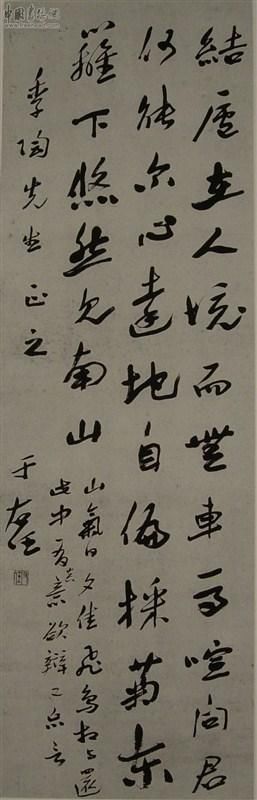 結廬在人境而無車馬喧問君
何能尔心遠地自偏採菊東
籬下悠然見南山
山氣日夕佳飛鳥相與還
此中有真意欲辯已忘言
季陶先生正之
于右任